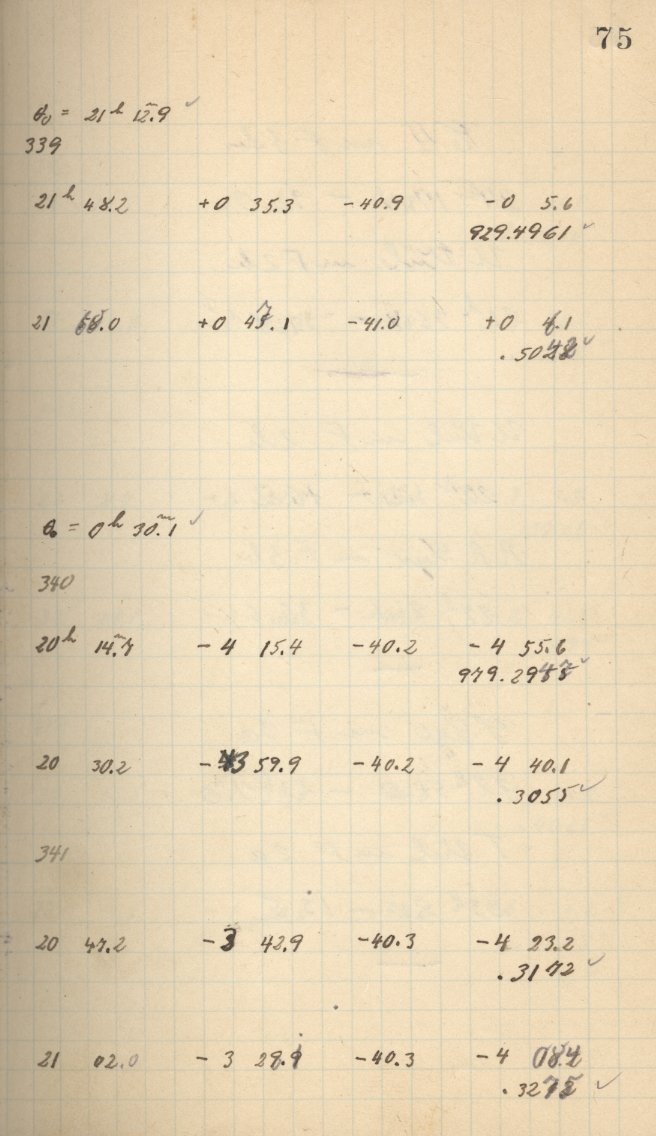 75
θ₀ = 21ʰ 12ᵐ.9 ✓
339
21ʰ 48.2 +0 35.3 -40.9 -0 5.6
929.4961 ✓
21 60.0 +0 47.1 -41.0 +0 6.1
.5042 ✓
θ₀ = 0ʰ 30ᵐ.1 ✓
340
20ʰ 14ᵐ.7 -4 15.4 -40.2 -4 55.6
979.2947 ✓
20 30.2 -3 59.9 -40.2 -4 40.1
.3055 ✓
341
20 47.2 -3 42.9 -40.3 -4 23.2
.3172 ✓
21 02.0 -3 28.1 -40.3 -4 08.4
.3275 ✓